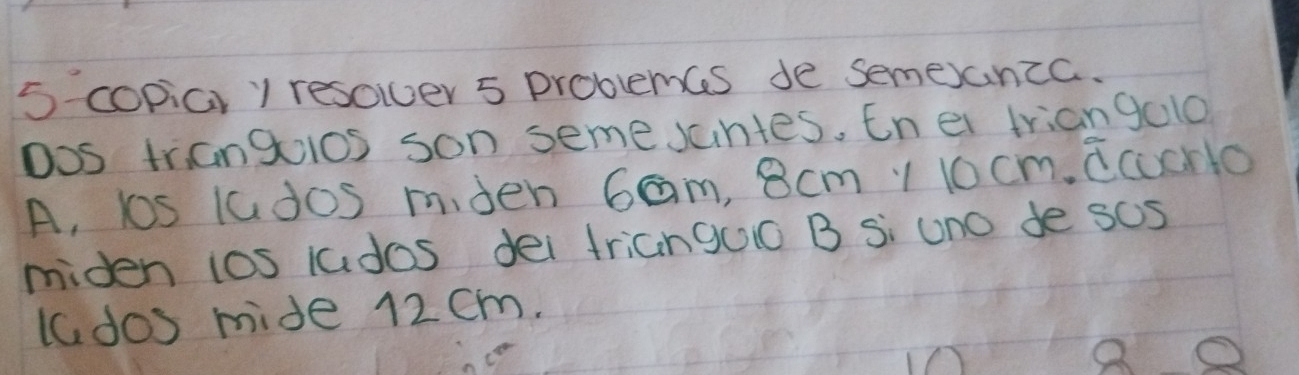 5- copiar y resolver 5 problemas de semejanza.
Dos triangulos son semejantes. En el triangulo
A, los lados miden 6cm, 8cm y 10cm. ¿Cuanto
miden los lados del triangulo B si uno de sus
lados mide 12 cm.
cm
10 8 8